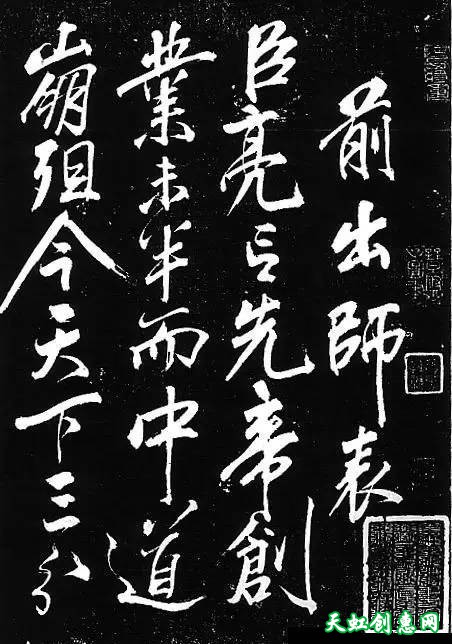 前出師表
臣亮言先帝創
業未半而中道
崩殂今天下三分
天虹创意网